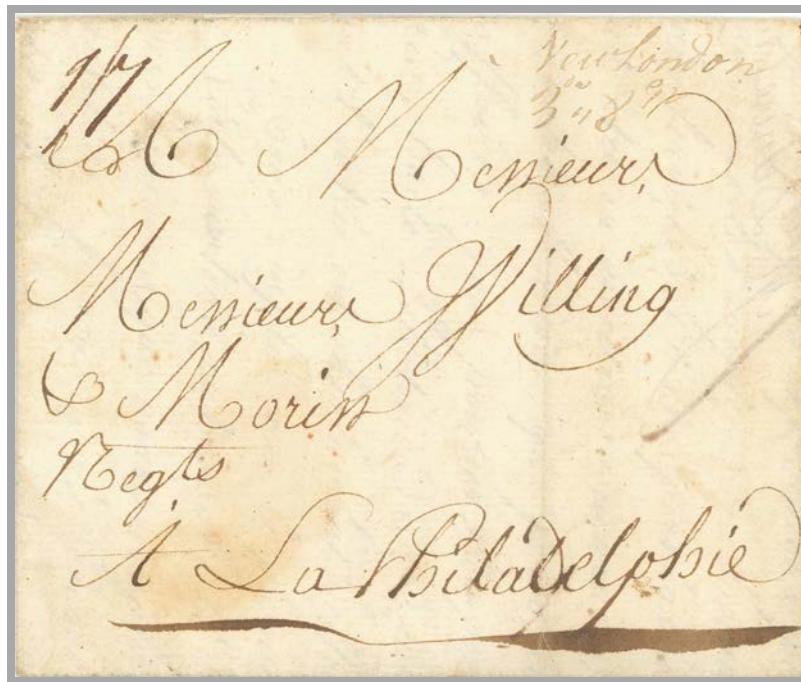 New London
3 dw 8 gr
1/7
A Messieurs
Messieurs Willing
& Moriss
Negts
A La Philadelphie